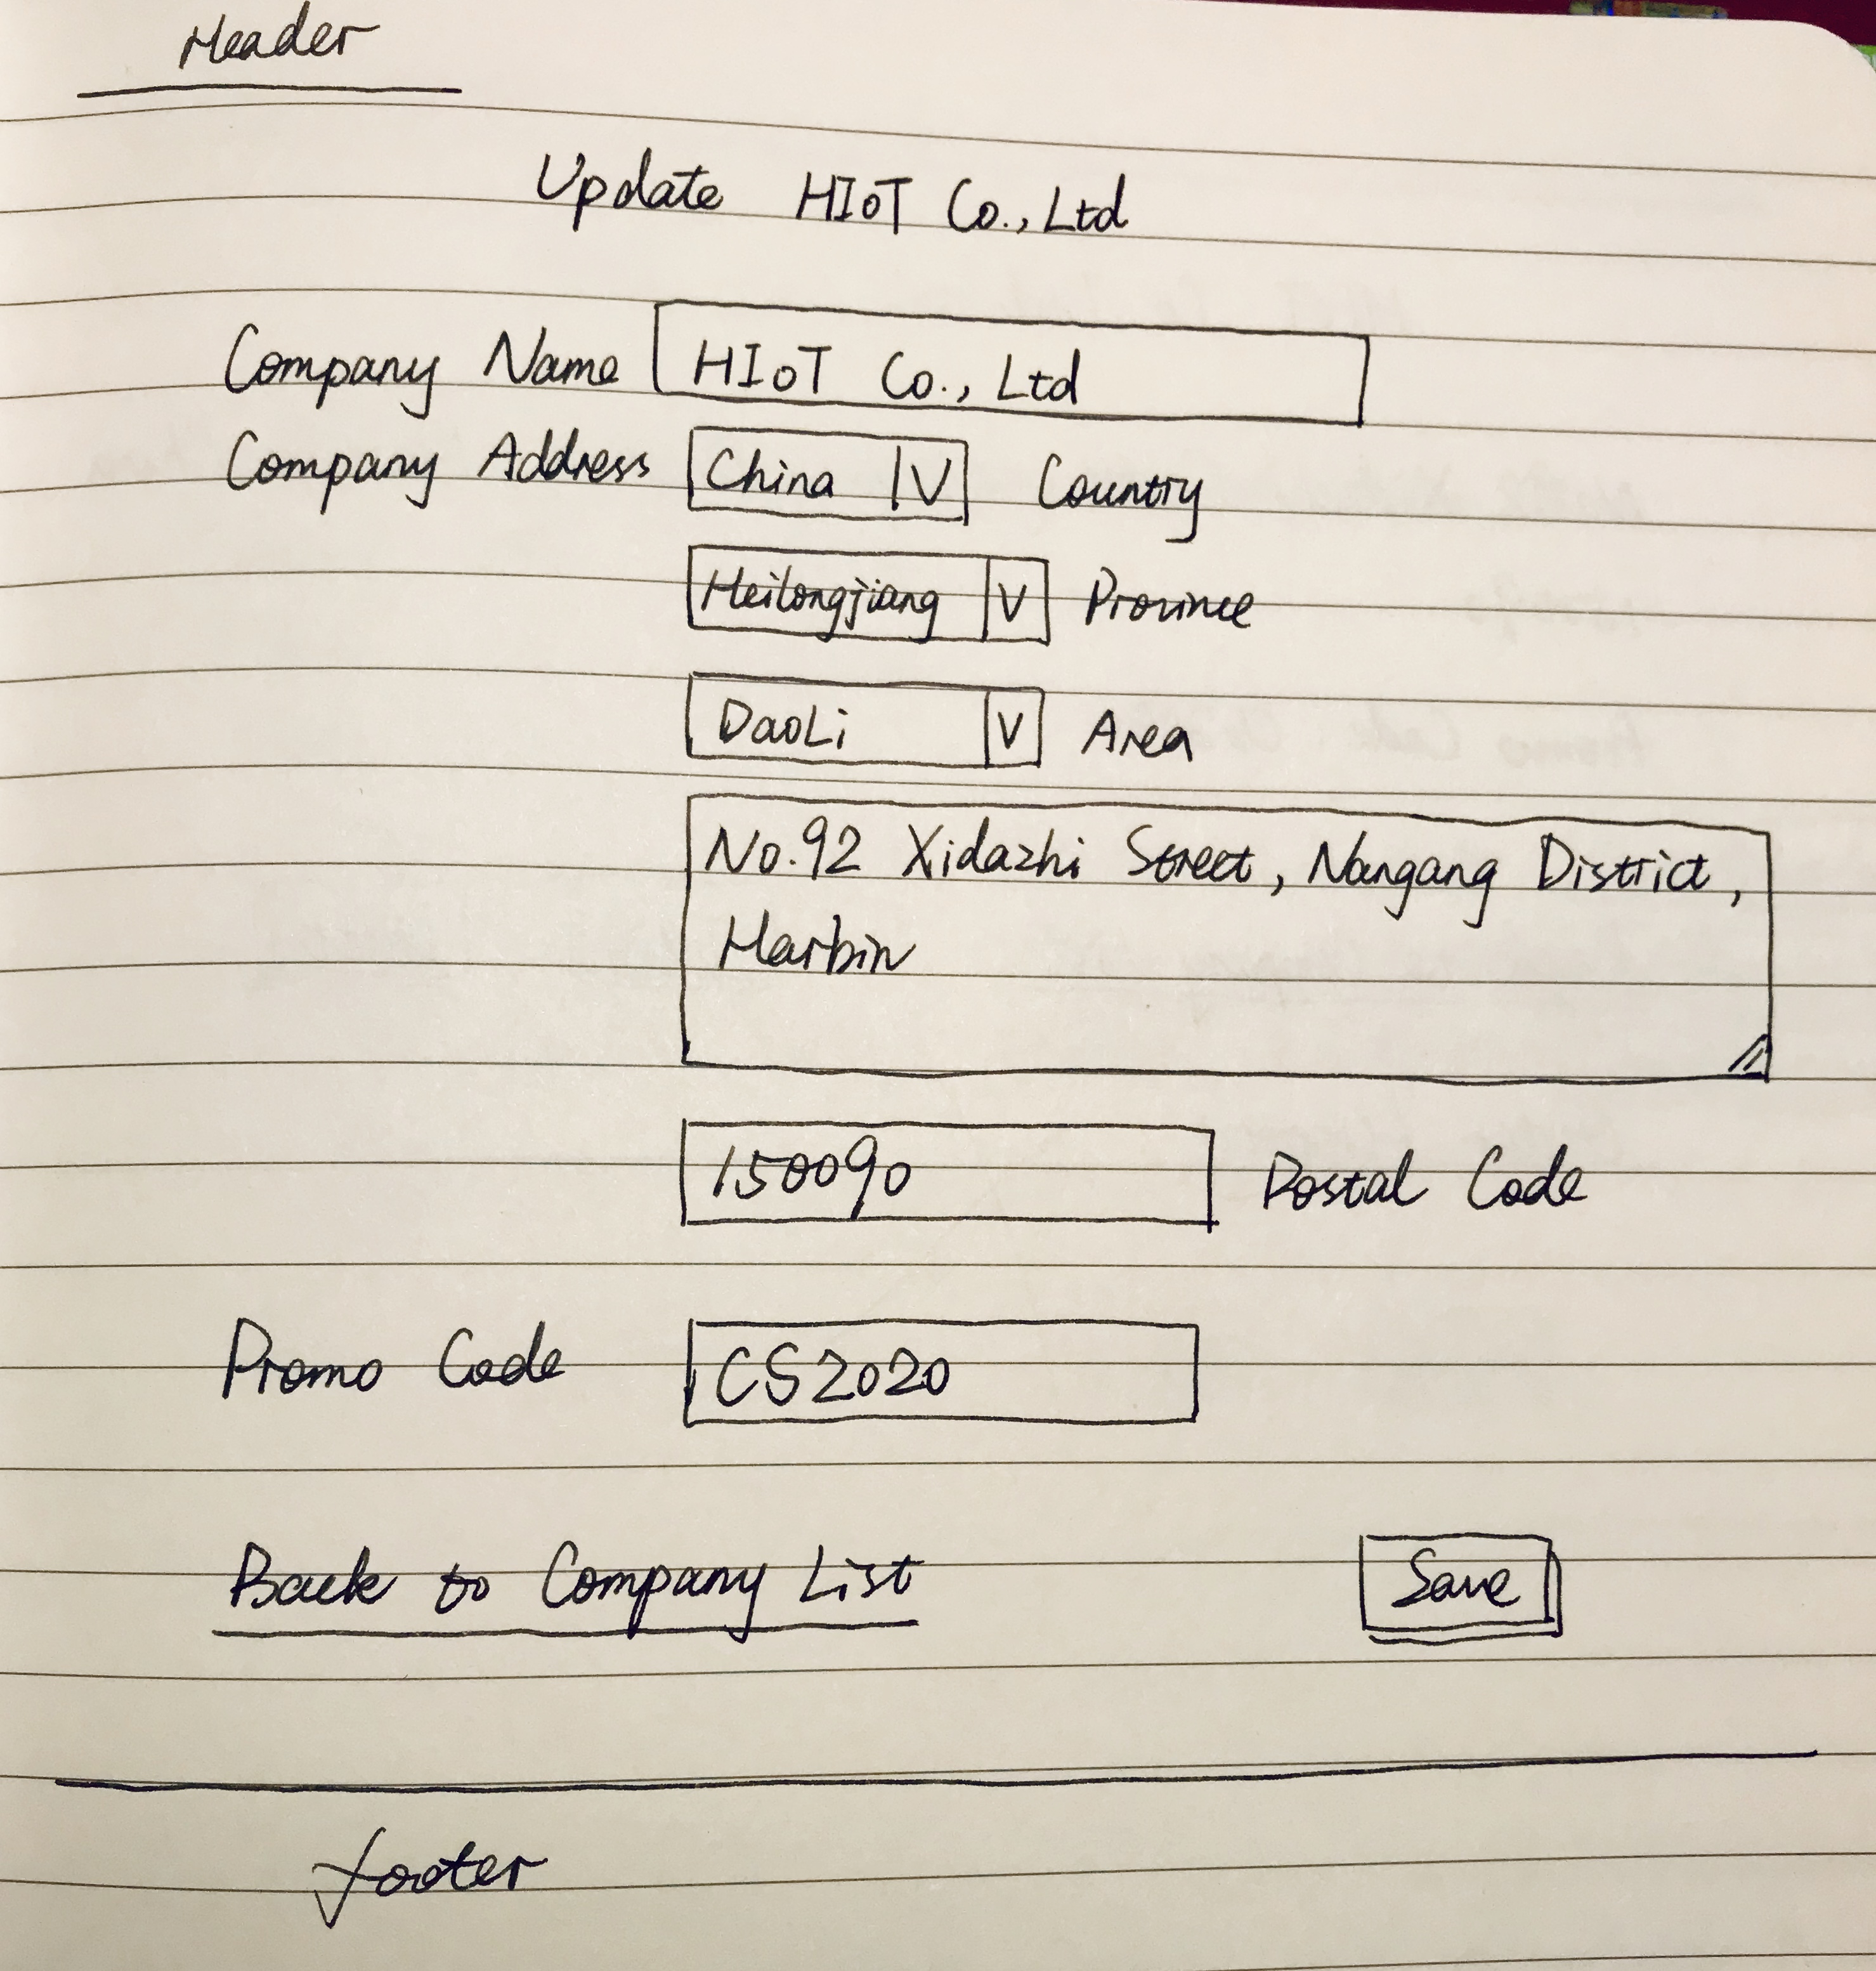 Header
Update HIoT Co., Ltd
Company Name HIoT Co., Ltd
Company Address China V Country
Heilongjiang V Province
DaoLi V Area
No.92 Xidazhi Street, Nangang District,
Harbin
150090 Postal Code
Promo Code CS2020
Back to Company List Save
footer